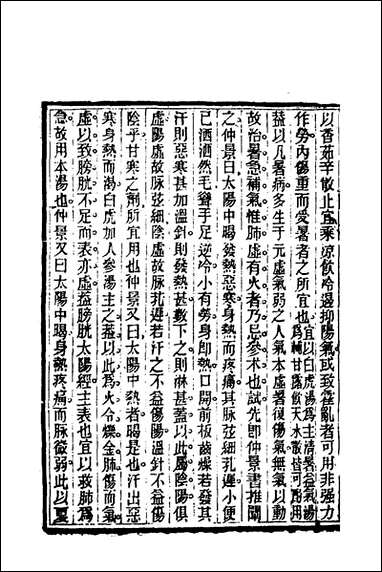 以香茹辛散止宜乘涼飲冷遏抑陽氣或致霍亂者可用非強力
作勞內傷重而受暑者之所宜也宜以白虎湯爲主清暑益氣湯
爲輔甘露飲天水散皆可酌用
益以凡暑病多生于元虛氣弱之人氣本虛暑復傷氣無氣以動
故治暑急補氣惟肺虛有火者乃忌參术也試先即仲景書推闡
之仲景曰太陽中暍發熱惡寒身熱而疼痛其脉弦細芤遲小便
已洒洒然毛聳手足逆冷小有勞身即熱口開前板齒燥若發其
汗則惡寒甚加溫針則發熱甚數下之則淋甚蓋以此屬陰陽俱
虛陽虛故脉弦細陰虛故脉芤遲若汗之不益傷陽溫針不益傷
陰乎甘寒之劑所宜用也仲景又曰太陽中熱者暍是也汗出惡
寒身熱而渴白虎加人參湯主之蓋以此爲火令爍金肺傷而氣
虛以致膀胱不足而表亦虛蓋膀胱太陽經主表也宜以救肺爲
急故用本湯也仲景又曰太陽中暍身熱疼痛而脉微弱此以夏